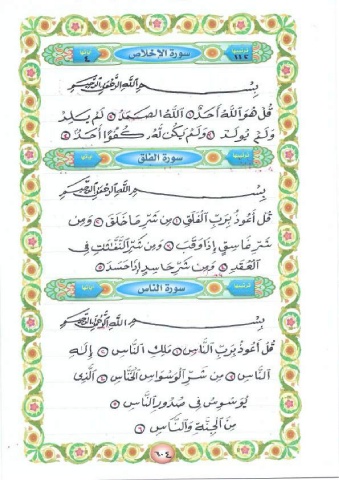 ترتيبها ١١٢ سورة الإخلاص آياتها ٤
بسم الله الرحمن الرحيم
قُلْ هُوَ اللَّهُ أَحَدٌ ١ اللَّهُ الصَّمَدُ ٢ لَمْ يَلِدْ
وَلَمْ يُولَدْ ٣ وَلَمْ يَكُن لَّهُ كُفُوًا أَحَدٌ ٤
ترتيبها سورة الفلق آياتها
بسم الله الرحمن الرحيم
قُلْ أَعُوذُ بِرَبِّ الْفَلَقِ ١ مِن شَرِّ مَا خَلَقَ ٢ وَمِن
شَرِّ غَاسِقٍ إِذَا وَقَبَ ٣ وَمِن شَرِّ النَّفَّاثَاتِ فِي
الْعُقَدِ ٤ وَمِن شَرِّ حَاسِدٍ إِذَا حَسَدَ ٥
ترتيبها سورة الناس آياتها
بسم الله الرحمن الرحيم
قُلْ أَعُوذُ بِرَبِّ النَّاسِ ١ مَلِكِ النَّاسِ ٢ إِلَهِ
النَّاسِ ٣ مِن شَرِّ الْوَسْوَاسِ الْخَنَّاسِ ٤ الَّذِي
يُوَسْوِسُ فِي صُدُورِ النَّاسِ ٥
مِنَ الْجِنَّةِ وَالنَّاسِ ٦
٦٠٤